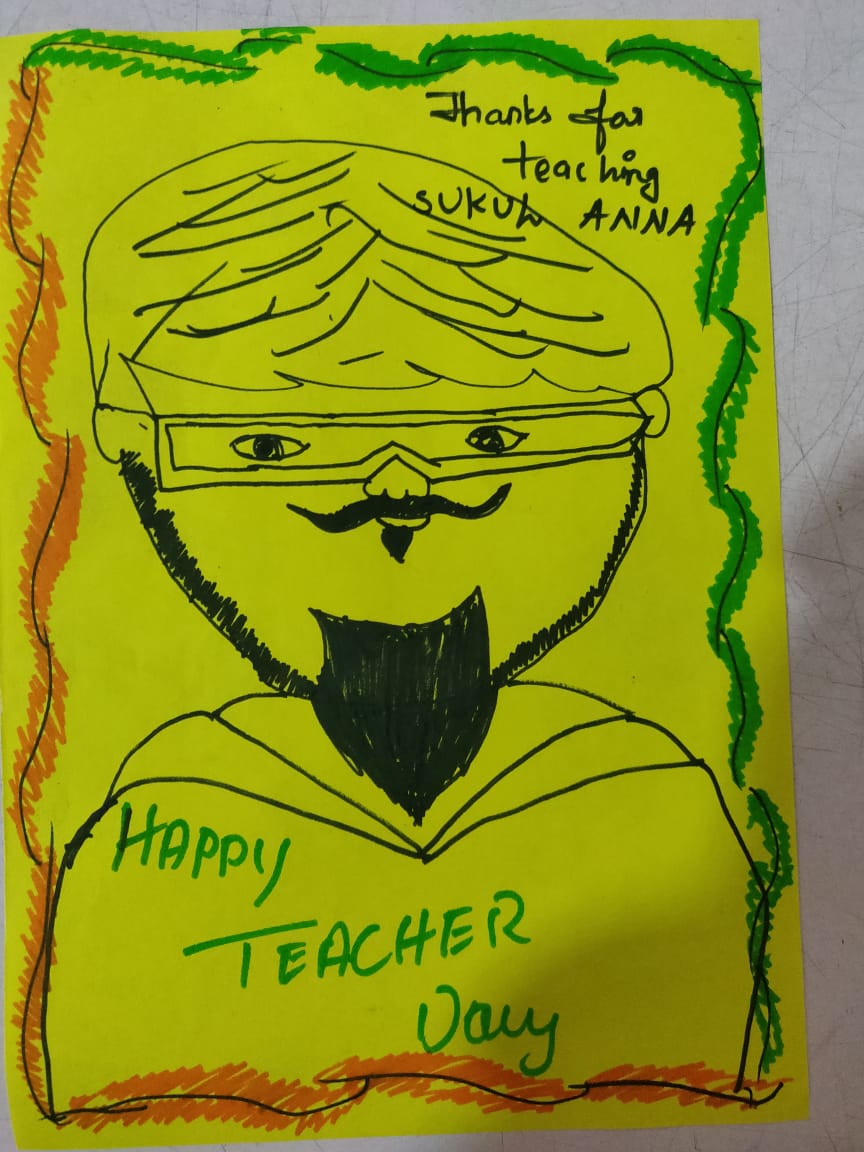 Thanks for
teaching
SUKUL ANNA
HAPPY
TEACHER
Day